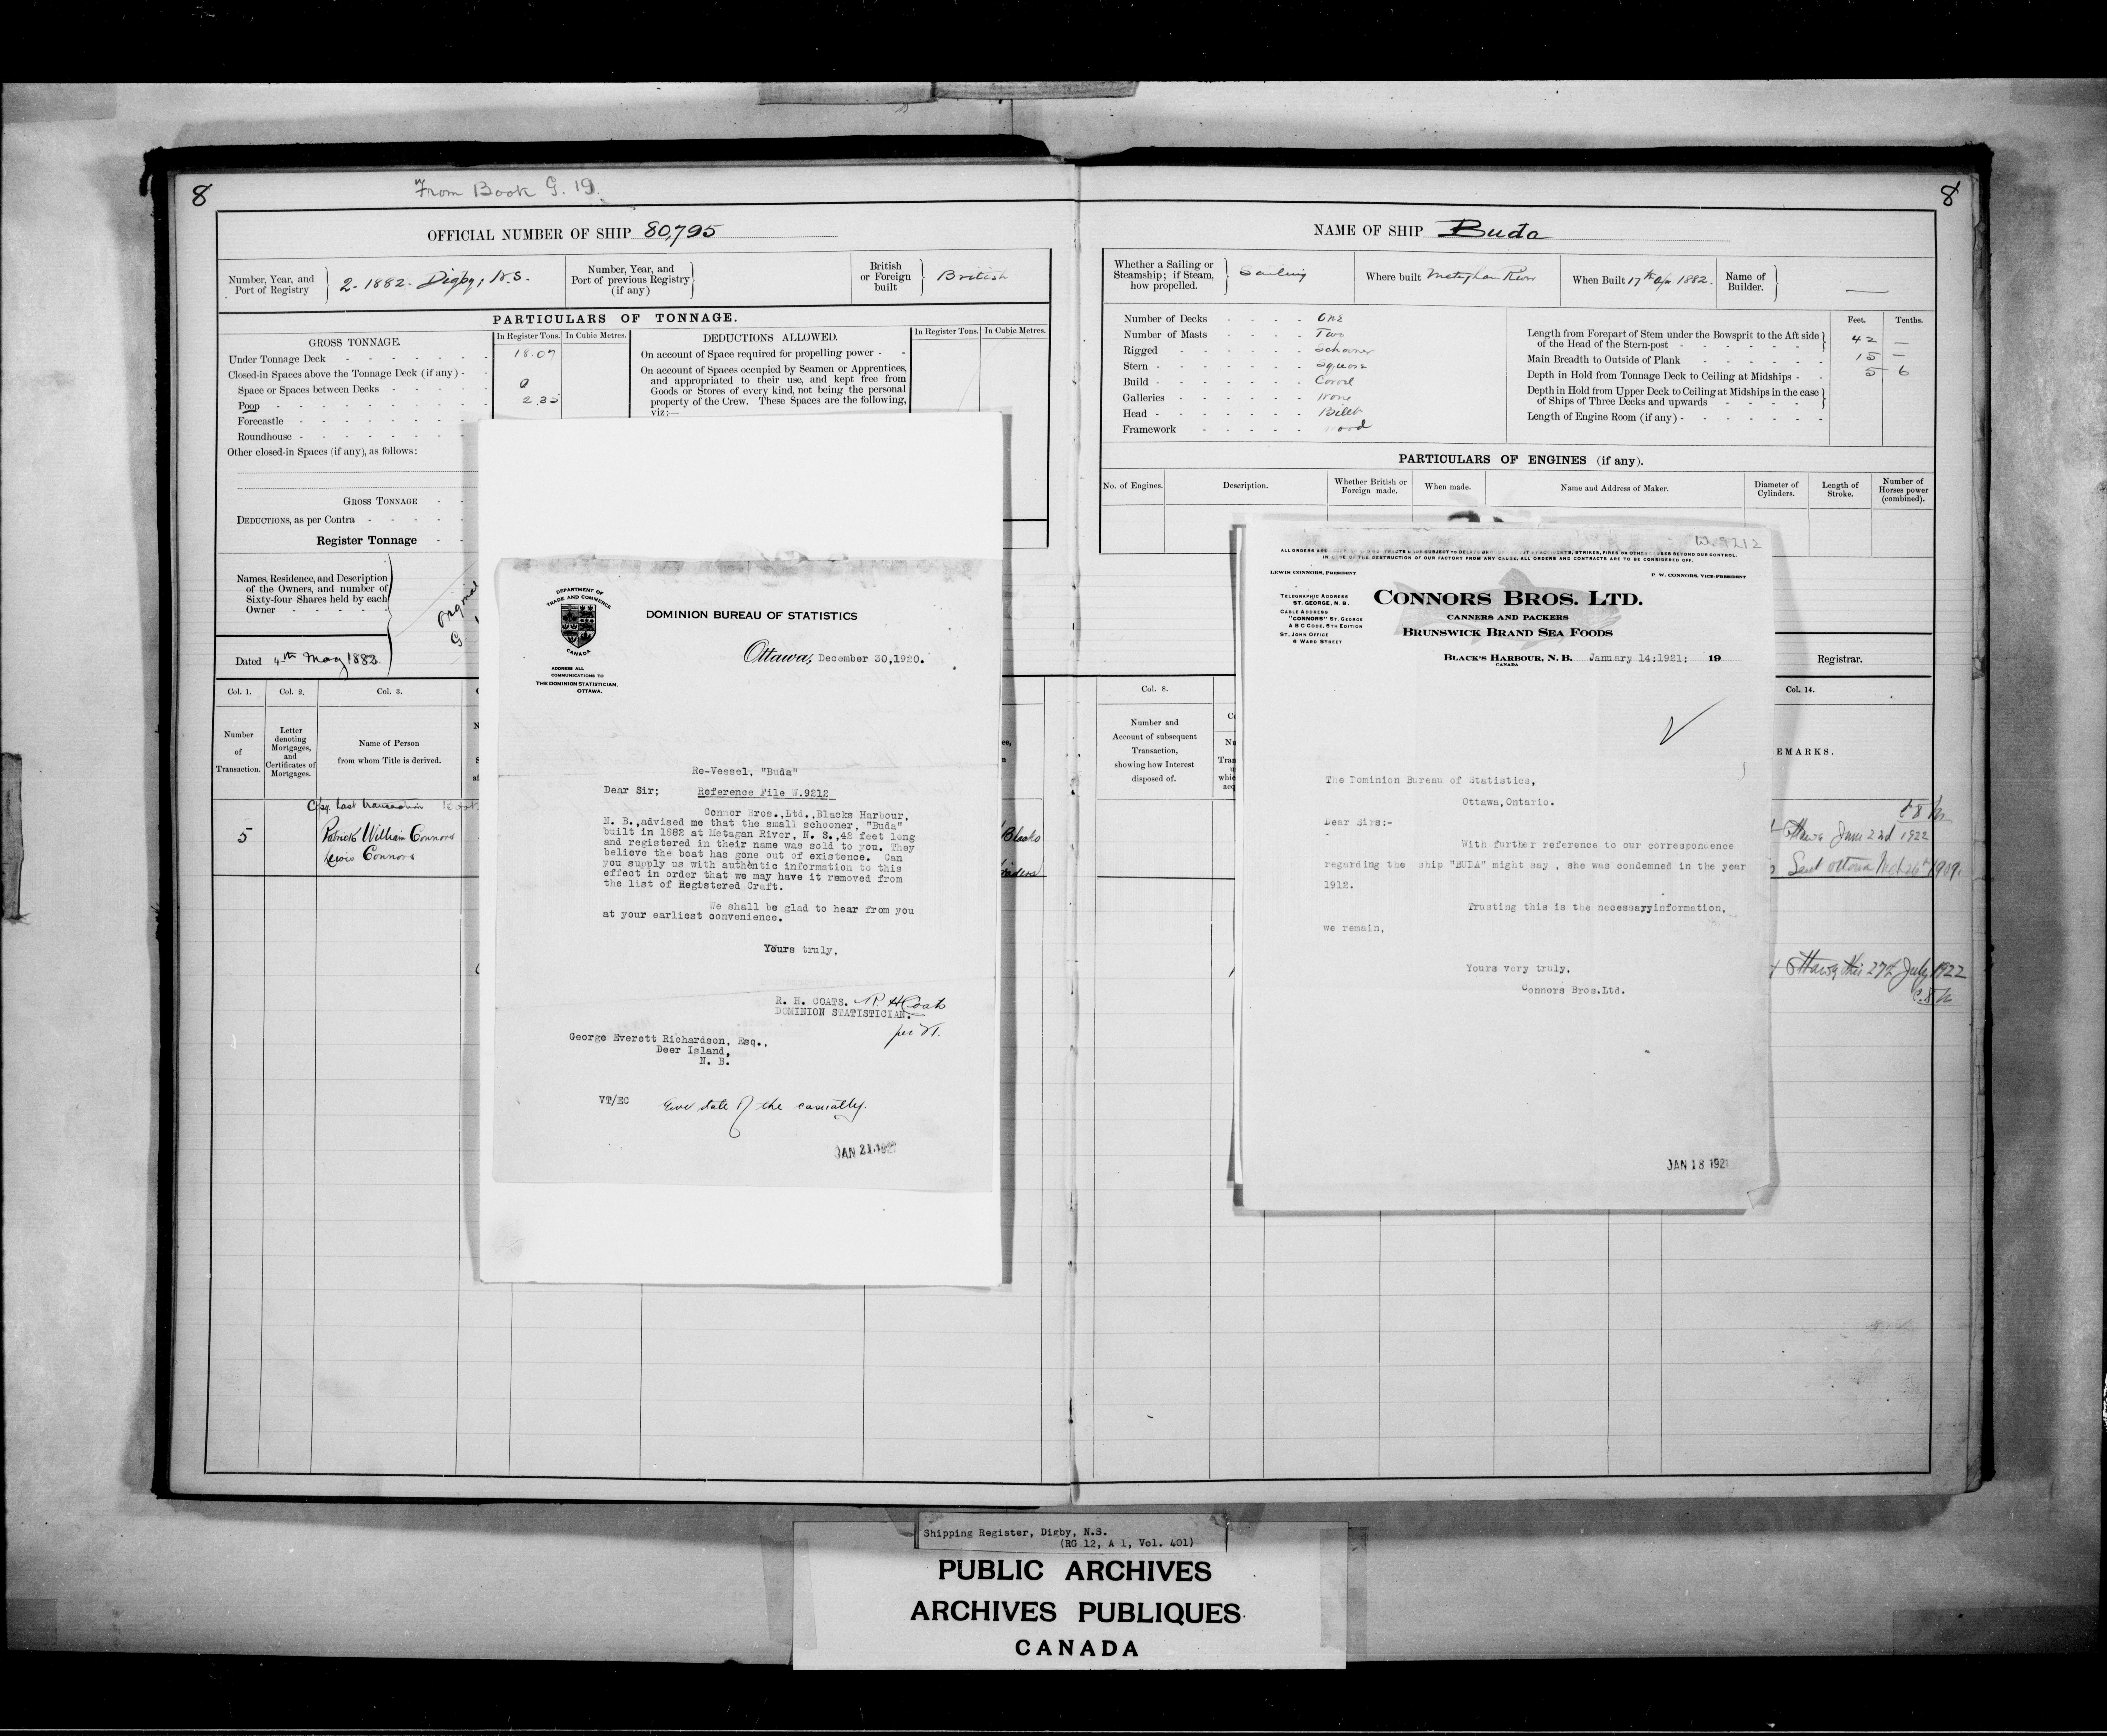 8
From Book G. 19.
OFFICIAL NUMBER OF SHIP 80,795
Number, Year, and
Port of Registry
2-1882. Digby, N.S.
Number, Year, and
Port of previous Registry
(if any)
British
or Foreign
built
British
PARTICULARS OF TONNAGE.
GROSS TONNAGE.
In Register Tons.
In Cubic Metres.
Under Tonnage Deck 18.07
Closed-in Spaces above the Tonnage Deck (if any)
Space or Spaces between Decks
Poop 2.35
Forecastle
Roundhouse
Other closed-in Spaces (if any), as follows:
GROSS TONNAGE
DEDUCTIONS, as per Contra
Register Tonnage
DEDUCTIONS ALLOWED.
In Register Tons.
In Cubic Metres.
On account of Space required for propelling power
On account of Spaces occupied by Seamen or Apprentices,
and appropriated to their use, and kept free from
Goods or Stores of every kind, not being the personal
property of the Crew. These Spaces are the following,
viz:—
Names, Residence, and Description
of the Owners, and number of
Sixty-four Shares held by each
Owner
Dated 4th May 1882.
Col. 1.
Col. 2.
Col. 3.
Number
of
Transaction.
Letter
denoting
Mortgages,
and
Certificates of
Mortgages.
Name of Person
from whom Title is derived.
Copy last transaction
5
Patrick William Connors
Lewis Connors
DEPARTMENT OF
TRADE AND COMMERCE
CANADA
ADDRESS ALL
COMMUNICATIONS TO
THE DOMINION STATISTICIAN.
OTTAWA.
DOMINION BUREAU OF STATISTICS
Ottawa, December 30,1920.
Re-Vessel, "Buda"
Dear Sir; Reference File W.9212
Connor Bros.,Ltd.,Blacks Harbour,
N. B.,advised me that the small schooner, "Buda"
built in 1882 at Metagan River, N. S.,42 feet long
and registered in their name was sold to you. They
believe the boat has gone out of existence. Can
you supply us with authentic information to this
effect in order that we may have it removed from
the list of Registered Craft.
We shall be glad to hear from you
at your earliest convenience.
Yours truly,
R. H. COATS. R H Coats
DOMINION STATISTICIAN.
per
George Everett Richardson, Esq.,
Deer Island,
N. B.
VT/EC
Give date of the casualty.
JAN 21 192
Blacks
8
NAME OF SHIP Buda
Whether a Sailing or
Steamship; if Steam,
how propelled.
Sailing
Where built Meteghan River
When Built 17th Apr 1882.
Name of
Builder.
Number of Decks One
Number of Masts Two
Rigged Schooner
Stern Square
Build Carvel
Galleries None
Head Billet
Framework wood
Feet.
Tenths.
Length from Forepart of Stem under the Bowsprit to the Aft side
of the Head of the Stern-post 42 —
Main Breadth to Outside of Plank 15 —
Depth in Hold from Tonnage Deck to Ceiling at Midships 5 6
Depth in Hold from Upper Deck to Ceiling at Midships in the case
of Ships of Three Decks and upwards
Length of Engine Room (if any)
PARTICULARS OF ENGINES (if any).
No. of Engines.
Description.
Whether British or
Foreign made.
When made.
Name and Address of Maker.
Diameter of
Cylinders.
Length of
Stroke.
Number of
Horses power
(combined).
Registrar.
Col. 8.
Number and
Account of subsequent
Transaction,
showing how Interest
disposed of.
Col. 14.
EMARKS.
Ottawa June 22d 1922
Sent Ottawa Mch 26th 1909.
Ottawa this 27th July 1922
W.9212
LEWIS CONNORS, PRESIDENT
P. W. CONNORS, VICE-PRESIDENT
IN CASE OF THE DESTRUCTION OF OUR FACTORY FROM ANY CAUSE, ALL ORDERS AND CONTRACTS ARE TO BE CONSIDERED OFF.
TELEGRAPHIC ADDRESS
ST. GEORGE, N. B.
CABLE ADDRESS
"CONNORS" ST. GEORGE
A B C CODE, 5TH EDITION
ST. JOHN OFFICE
6 WARD STREET
CONNORS BROS. LTD.
CANNERS AND PACKERS
BRUNSWICK BRAND SEA FOODS
BLACK'S HARBOUR, N. B. January 14:1921: 19
CANADA
The Dominion Bureau of Statistics,
Ottawa,Ontario.
Dear Sirs:-
With further reference to our correspondence
regarding the ship "BUDA" might say , she was condemned in the year
1912.
Trusting this is the necessayyinformation,
we remain,
Yours very truly,
Connors Bros.Ltd.
JAN 18 192
Shipping Register, Digby, N.S.
(RG 12, A 1, Vol. 401)
PUBLIC ARCHIVES
ARCHIVES PUBLIQUES
CANADA